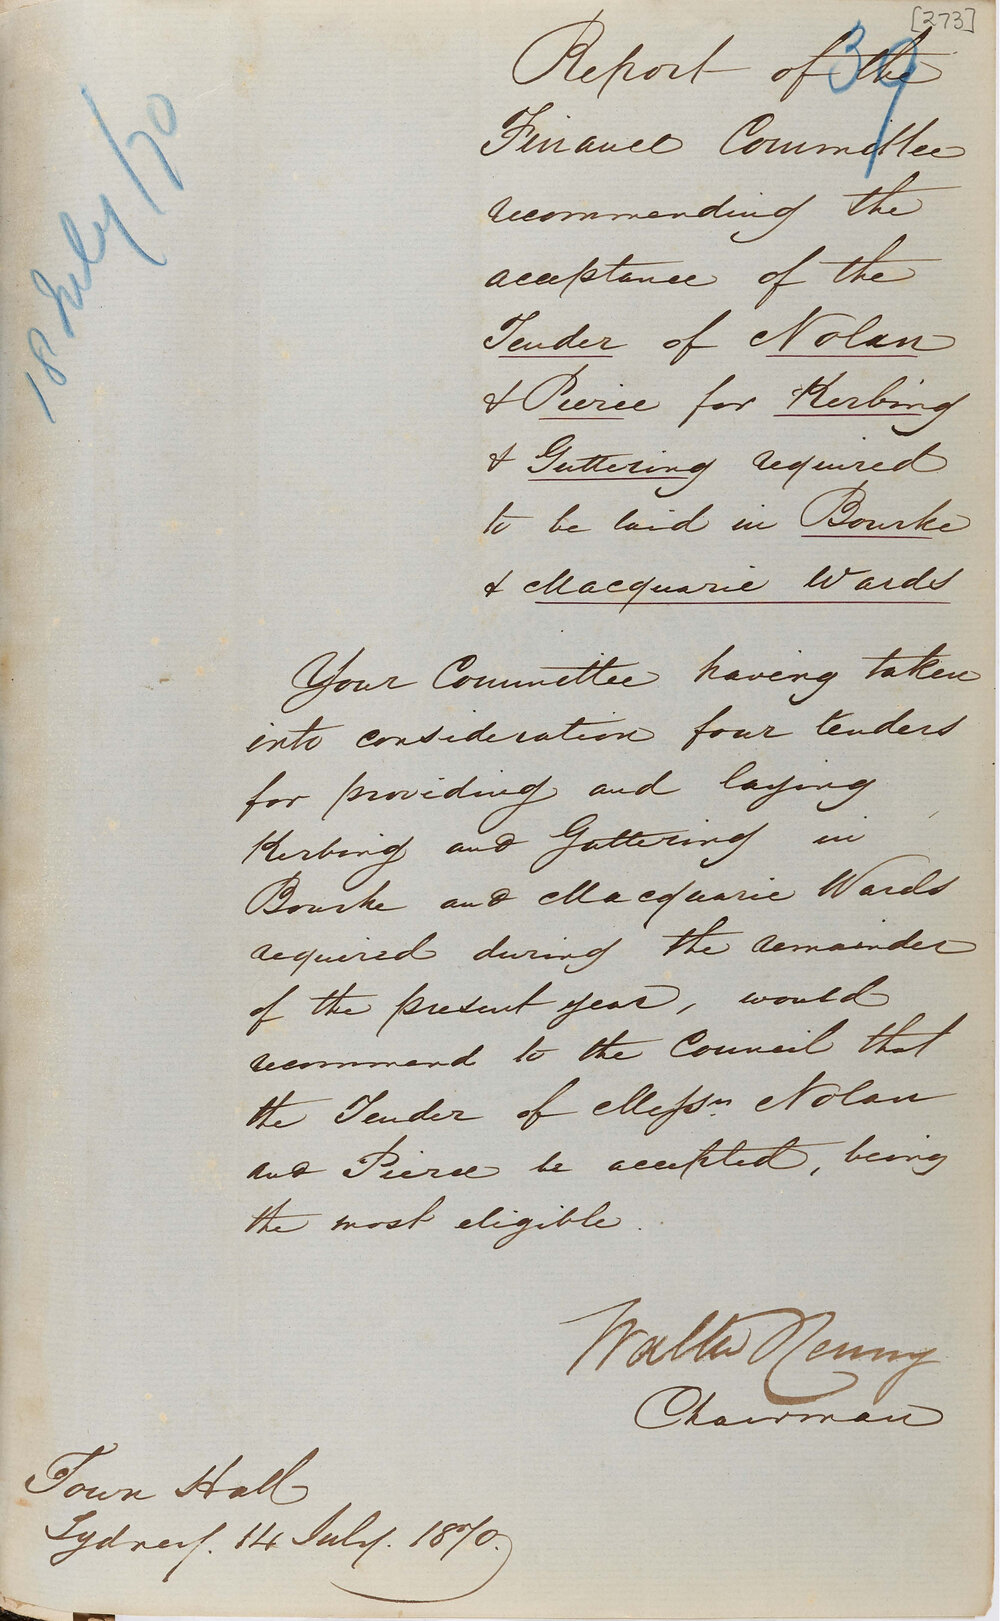 [273]
39
18 July/70
Report of the
Finance Committee
recommending the
acceptance of the
Tender of Nolan
& Pierce for Kerbing
& Guttering required
to be laid in Bourke
& Macquarie Wards
Your Committee having taken
into consideration four tenders
for providing and laying
Kerbing and Guttering in
Bourke and Macquarie Wards
required during the remainder
of the present year, would
recommend to the Council that
the Tender of Messrs. Nolan
and Pierce be accepted, being
the most eligible.
Walter Renny
Chairman
Town Hall
Sydney. 14 July. 1870.